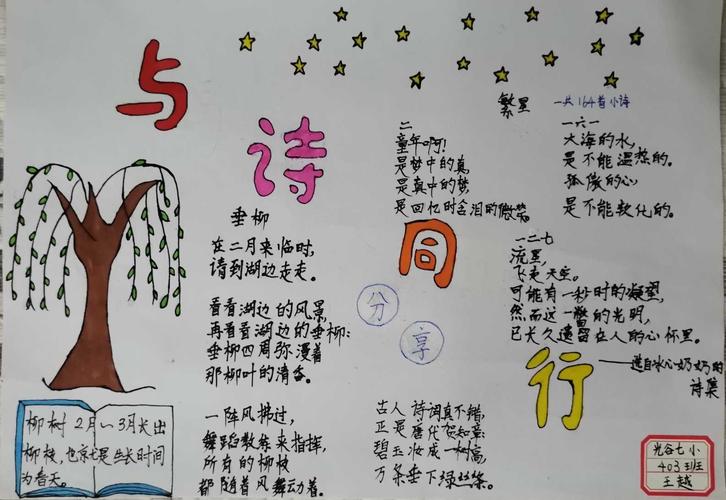 与诗同行
繁星
一共164首小诗
二
童年啊!
是梦中的真,
是真中的梦,
是回忆时含泪的微笑。
一六一
大海的水,
是不能温热的。
孤傲的心,
是不能软化的。
一二七
流星,
飞走天空。
可能有一秒时的凝望,
然而这一瞥的光明,
已长久遗留在人的心怀里。
——选自冰心奶奶的
诗集
分享
垂柳
在二月来临时,
请到湖边走走。
看看湖边的风景,
再看看湖边的垂柳:
垂柳四周弥漫着
那柳叶的清香。
一阵风拂过,
舞蹈教练来指挥,
所有的柳枝
都随着风舞动着。
古人诗词真不错,
正是唐代贺知章:
碧玉妆成一树高,
万条垂下绿丝绦。
柳树2月~3月长出
柳枝,也就是生长时间
为春天。
光谷七小
403班
王越